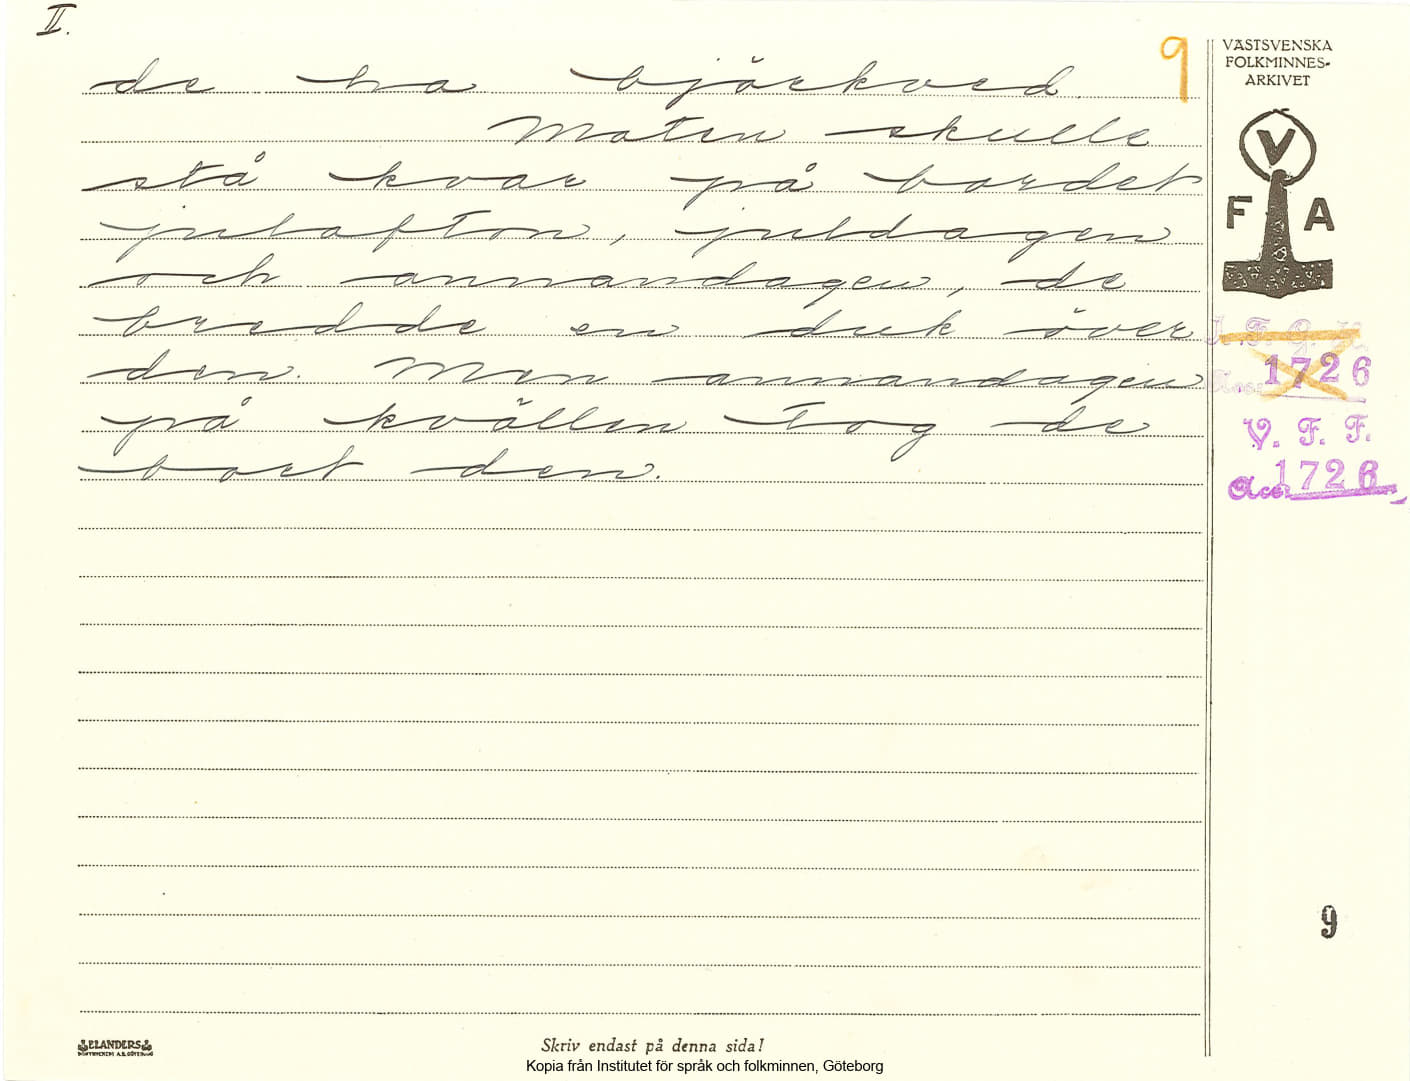 II.
9
de ha björkved.
Maten skulle
stå kvar på bordet
julafton, juldagen
och annandagen, de
bredde en duk över
den. Men annandagen
på kvällen tog de
bort den.
VÄSTSVENSKA
FOLKMINNES-
ARKIVET
V
F A
1726
V. F. F.
Acc. 1726
9
ELANDERS
Skriv endast på denna sida!
Kopia från Institutet för språk och folkminnen, Göteborg